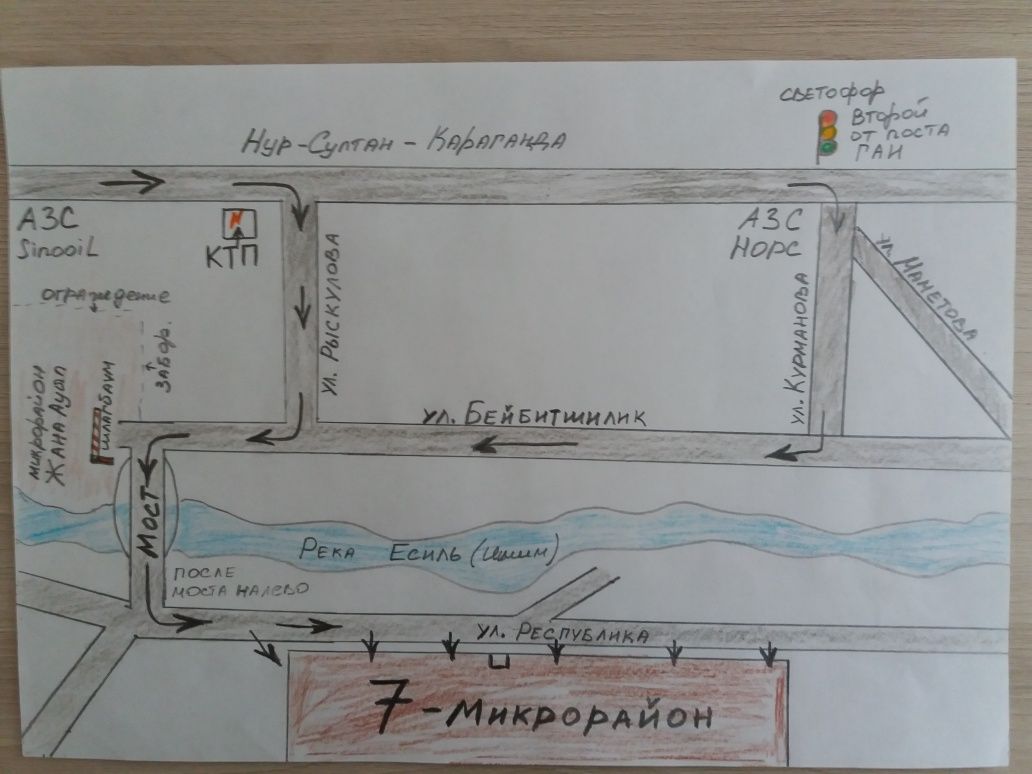 СВЕТОФОР
ВТОРОЙ
ОТ ПОСТА
ГАИ
НУР-СУЛТАН - КАРАГАНДА
АЗС
SinooiL
КТП
АЗС
НОРС
ул. МАМЕТОВА
ул. РЫСКУЛОВА
ул. КУРМАНОВА
ограждение
ЗАБОР.
МИКРОРАЙОН
ЖАНА АУЫЛ
ШЛАГБАУМ
ул. БЕЙБИТШИЛИК
МОСТ
РЕКА ЕСИЛЬ (Ишим)
ПОСЛЕ
МОСТА НАЛЕВО
ул. РЕСПУБЛИКА
7-МИКРОРАЙОН